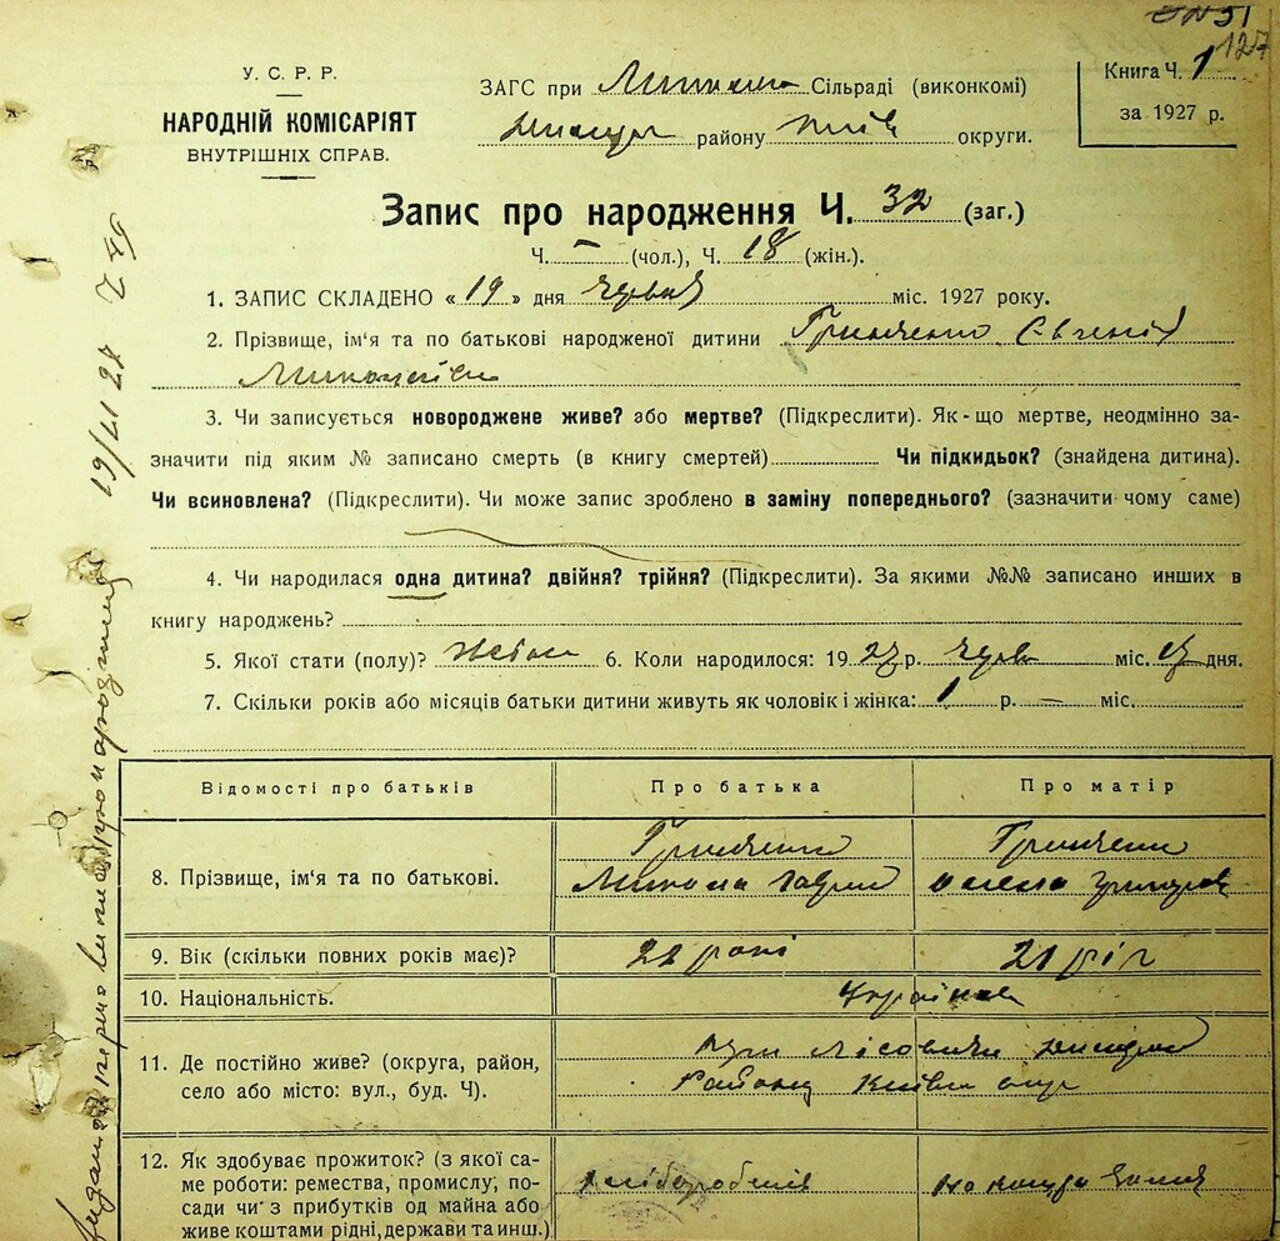 51
127
У. С. Р. Р.
НАРОДНІЙ КОМІСАРІЯТ
ВНУТРІШНІХ СПРАВ.
ЗАГС при Сільраді (виконкомі)
району Київ округи.
Книга Ч. 1
за 1927 р.
Запис про народження Ч. 32 (заг.)
Ч. – (чол.), Ч. 18 (жін.).
1. ЗАПИС СКЛАДЕНО «19» дня червня міс. 1927 року.
2. Прізвище, ім‘я та по батькові народженої дитини Гринченко Євгенія
Миколаївн
3. Чи записується новороджене живе? або мертве? (Підкреслити). Як-що мертве, неодмінно за-
значити під яким № записано смерть (в книгу смертей) Чи підкидьок? (знайдена дитина).
Чи всиновлена? (Підкреслити). Чи може запис зроблено в заміну попереднього? (зазначити чому саме)
4. Чи народилася одна дитина? двійня? трійня? (Підкреслити). За якими №№ записано инших в
книгу народжень?
5. Якої стати (полу)? 6. Коли народилося: 1927 р. черв міс. дня.
7. Скільки років або місяців батьки дитини живуть як чоловік і жінка: 1 р. – міс.
Відомості про батьків
Про батька
Про матір
8. Прізвище, ім‘я та по батькові.
Гринченко
Микола Гаврил
Гринченко
9. Вік (скільки повних років має)?
22 роки
21 рік
10. Національність.
Українці
11. Де постійно живе? (округа, район,
село або місто: вул., буд. Ч).
Лісовичи
Району Київськ окр
12. Як здобуває прожиток? (з якої са-
ме роботи: ремества, промислу, по-
сади чи з прибутків од майна або
живе коштами рідні, держави та инш.)
хліборобпів